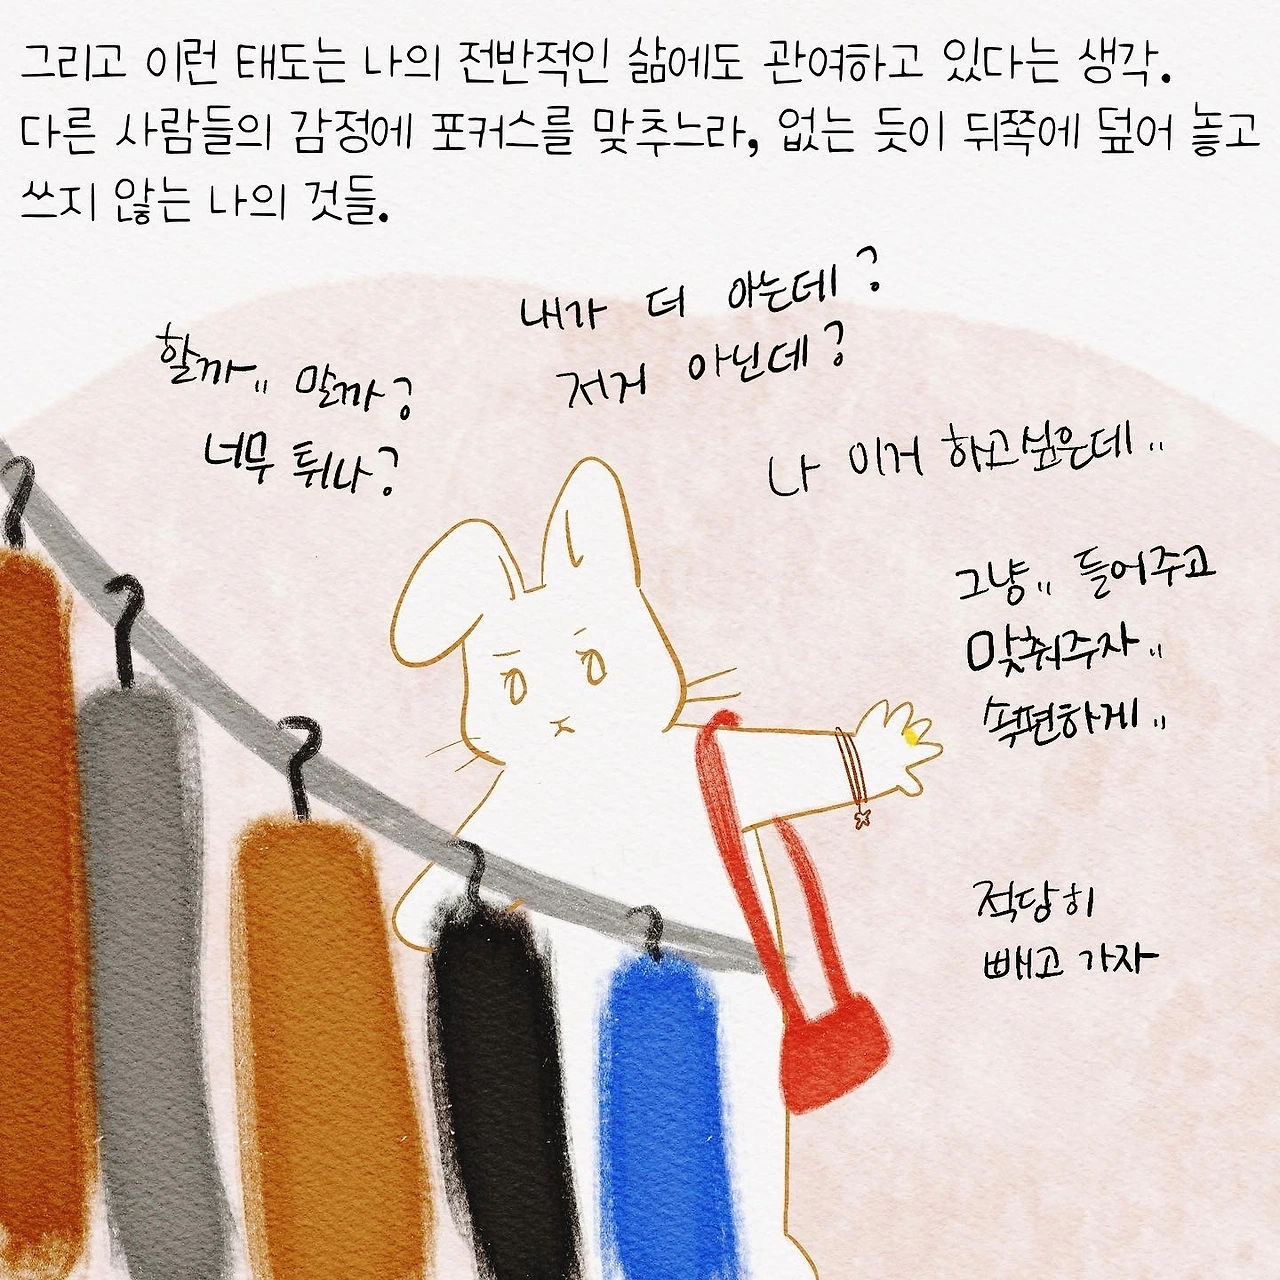 그리고 이런 태도는 나의 전반적인 삶에도 관여하고 있다는 생각.
다른 사람들의 감정에 포커스를 맞추느라, 없는 듯이 뒤쪽에 덮어 놓고
쓰지 않는 나의 것들.
할까.. 말까?
너무 튀나?
내가 더 아는데?
저거 아닌데?
나 이거 하고싶은데..
그냥.. 들어주고
맞춰주자..
속편하게..
적당히
빼고 가자